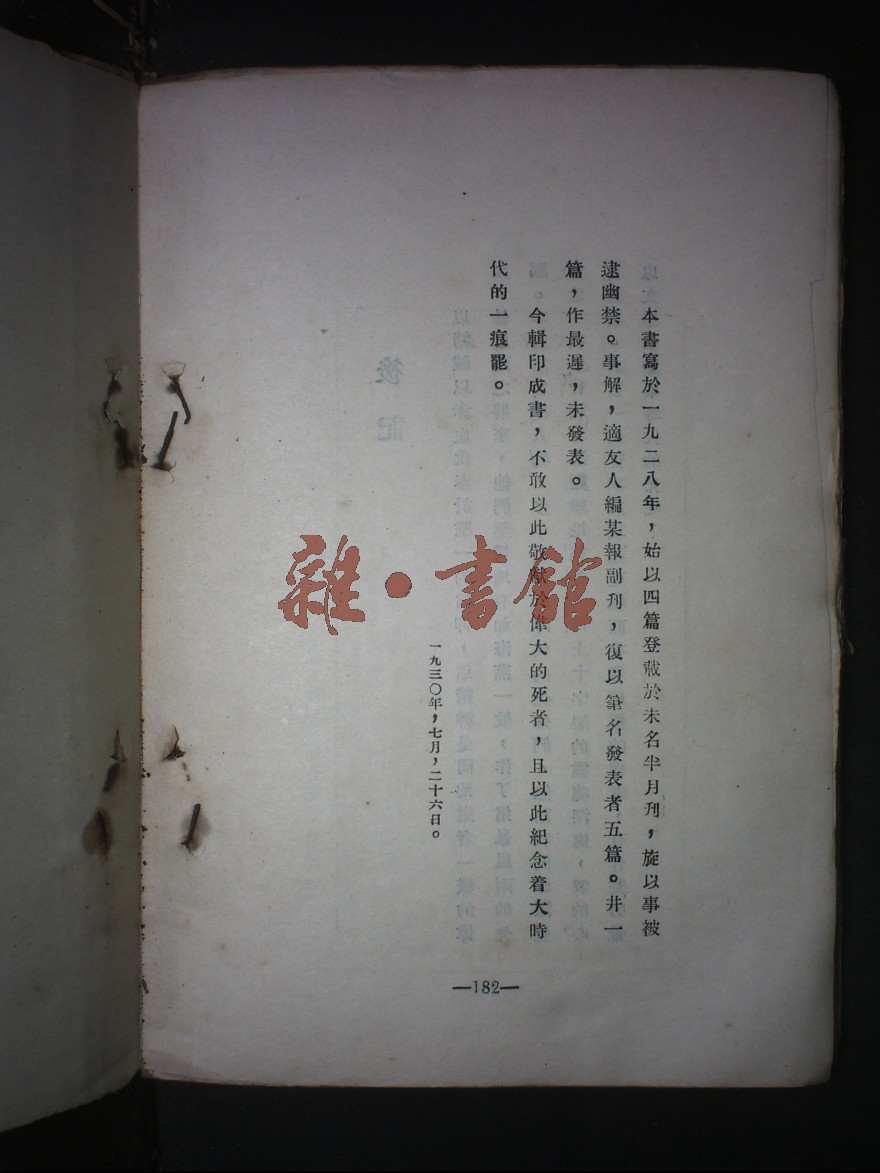 本書寫於一九二八年，始以四篇登載於未名半月刊，旋以事被
逮幽禁。事解，適友人編某報副刊，復以筆名發表者五篇。井一
篇，作最遲，未發表。
今輯印成書，不敢以此敬獻於偉大的死者，且以此紀念着大時
代的一痕罷。
一九三〇年，七月，二十六日。
—182—
雜·書館
後記